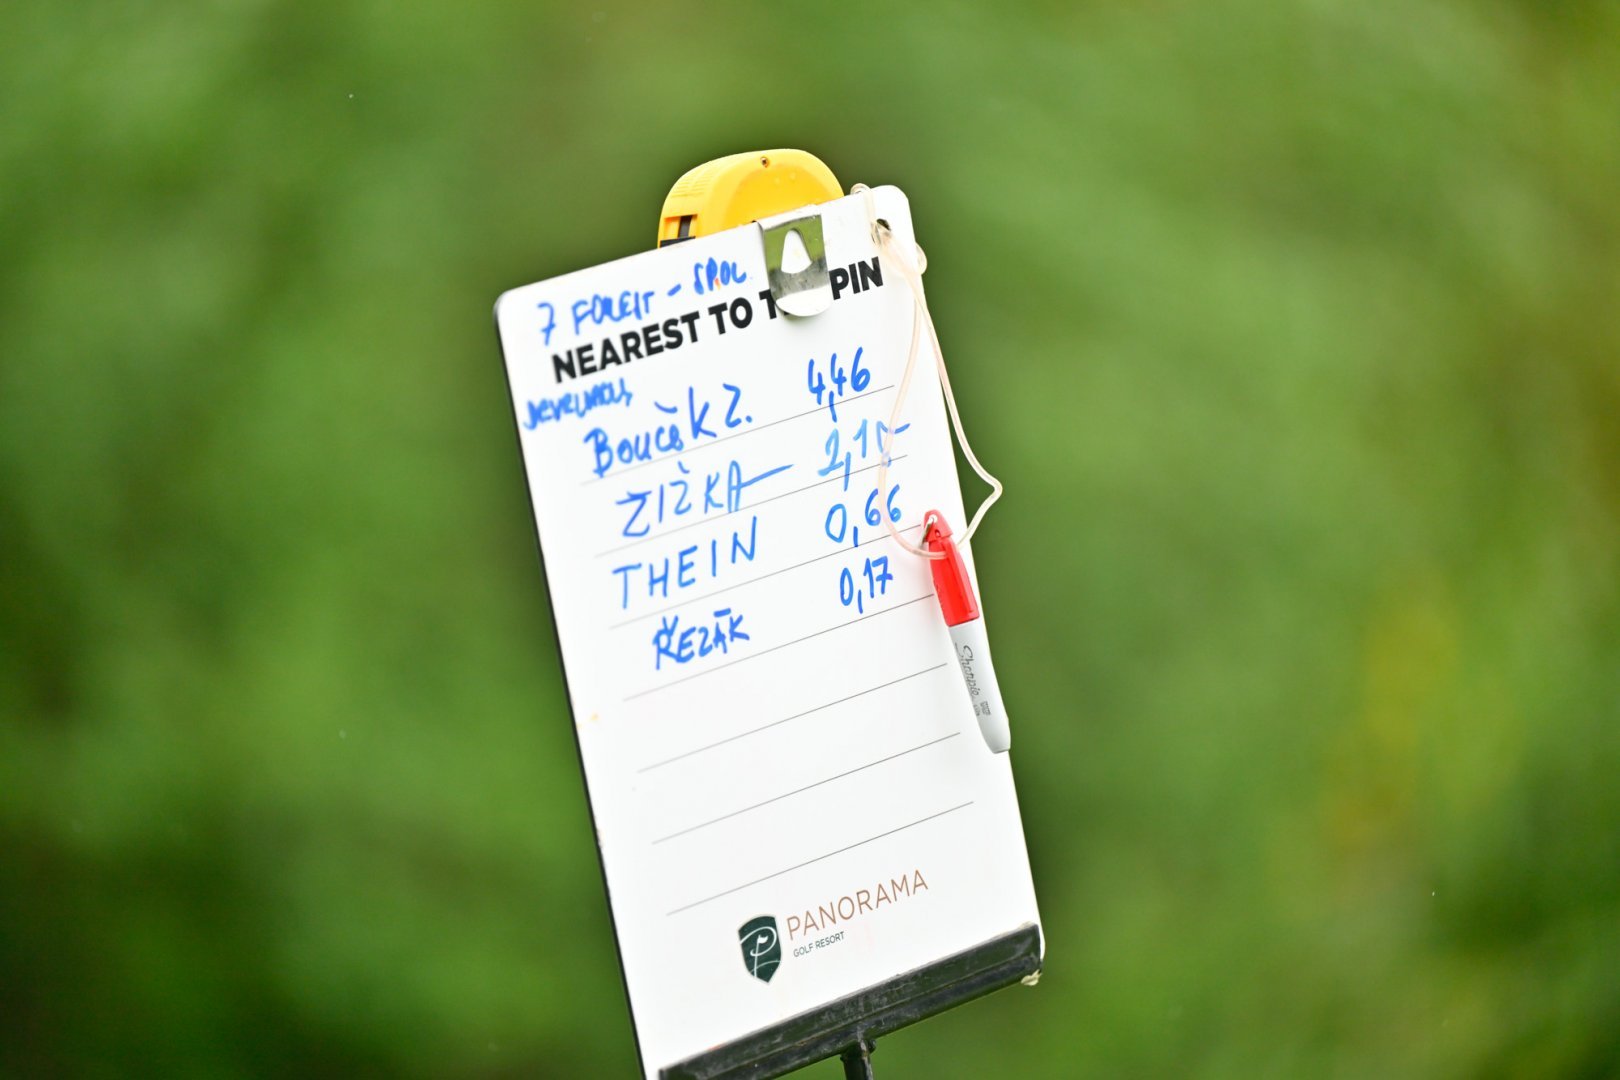 7 FOREST - SPOL.
NEAREST TO T PIN
BOUČEK Z. 4,46
ŽIŽKA 2,15
THEIN 0,66
ŘEZÁK 0,17
Sharpie
PANORAMA
GOLF RESORT